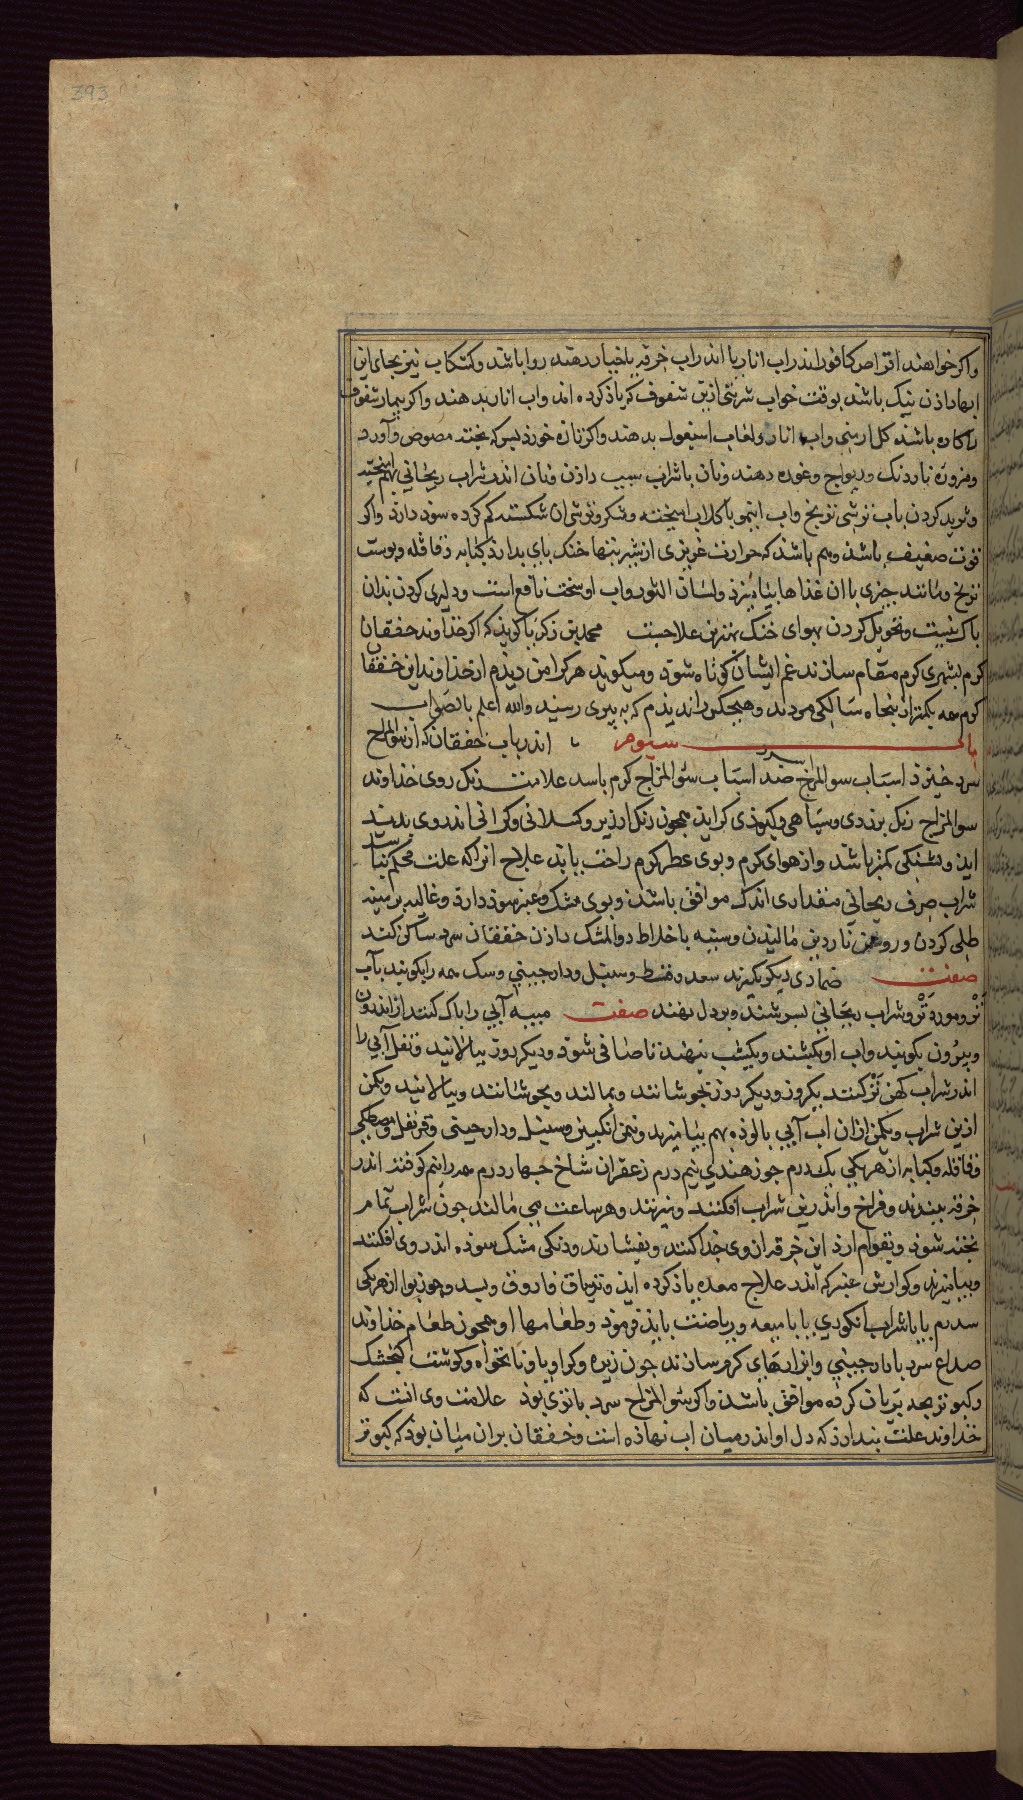 393
واکر خواهند اقراص کافور اندر اب انار یا اندر اب خرقه یا خیار دهند روا باشد وکشکاب نیز بجای این
ابها داذن نیک باشد بوقت خواب شربتی ازین سفوف کی یاذ کرده اند واب انار بدهند واکر بیمار سفوف
را کاره باشد کل ارمنی واب انار ولعاب اسپغول بدهند واکر نان خورد بسرکه بخته مصوص وآورد
ومزوره نارذنک وریواج وغوره دهند ونان باشراب سیب داذن ونان اندر شراب ریحانی بهم امیخته
وثرید کردن باب ترشی ترنج واب لیمو با کلاب امیخته وشکر وترشی ان شکسته کم کرده سوذ دارذ واکر
قوت ضعیف باشذ وبیم باشذ که حرارت غریزی از تبرید تنها خنک بای بدارذ کبابه وقاقله وبوست
ترنج ومانند چیزی با ان غذاها بیامیزذ ولسان الثور واب او سخت نافع است ودلیری کردن بدان
باک نیست وتحویل کردن بهوای خنک بهترین علاجست محمد بن زکریا کویذ که اکر خذاوند خفقان
کرم بشهری کرم مقام سازند عمر ایشان کوتاه شوذ ومیکویذ هرکرا من دیذم از خذاوند این خفقان
کرم همه بکمتر از بنجاه سالکی مردند وهیچکس را ندیذم که به بیری رسید والله اعلم بالصواب
باب سیوم اندر باب خفقان که از سوالمزاج
سرد خیزذ اسباب سوالمزاج سرد ضد اسباب سوالمزاج کرم باشد علامت رنک روی خذاوند
سوالمزاج رنک بزردی وسیاهی وکبوذی کرایذ همچون رنک ارزیر وکسلانی وکرانی اندر وی بدید
ایذ وتشنکی کمتر باشد واز هوای کرم وبوی عطر کرم راحت یابذ علاج انرا که علت محکم نباشد
شراب صرف ریحانی مقداری اندک موافق باشذ وبوی مشک وعنبر سوذ دارذ وغالیه بر سینه
طلی کردن وروغن ناردین مالیدن وسینه با خلاط دوالمشک داذن خفقان سرد ساکن کند
صفت ضمادی دیکر بکیرند سعد وقسط وسنبل ودارچینی وسک همه را بکوبند بآب
تر ومورد تر وشراب ریحانی بسرشند وبر دل نهند صفت میبه آبی را باک کنند از اندرون
وبیرون بکوبند واب او بکشند ویکشب بنهند تا صافی شوذ ودیکر روز ببالایند وثفل آبی را
اندر شراب کهن تر کنند یکروز ودیکر روز بجوشانند وبمالند وبجوشانند وببالایند ویکمن
ازین شراب ویکمن ازان اب آبی بالوذه بهم بیامیزند ونیمن انکبین وسنبل ودارچینی وقرنفل ومصطکی
وقاقله وکبابه از هریکی یک درم جوز هندی نیم درم زعفران شاخ چهار درم همه را نیم کوفته اندر
خرقه ببندند وفراخ واندرین شراب افکنند وبپزند وهر ساعت می مالند چون شراب تمام
بخته شوذ وبقوام ارذ این خرقه ازوی جذا کنند وبفشارند ودنکی مشک سوذه اندر وی افکنند
وبیامیزند وکوارش عنبر که اندر علاج معده یاذ کرده ایذ وتریاق فاروق وبسد وموز بوا از هریکی
سدرم یا باشراب انکوری یا با میبه وریاضت بایذ فرموذ وطعامها او همچون طعام خذاوند
صداع سرد با دارچینی وابزارهای کرم سازند چون زیره وکراویا ونانخواه وکوشت کنجشک
وکبوتر بچه بریان کرده موافق باشذ واکر سوالمزاج سرد باتری بوذ علامت وی انست که
خذاوند علت بندارذ که دل او اندر میان اب نهاذه است وخفقان بران میان بوذ که کبوتر